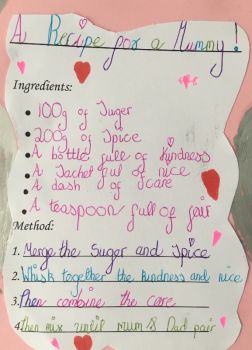 A Recipe for a Mummy!
Ingredients:
100g of Suger
200g of Spice
A bottle full of Kindness
A Sachet ful of nice
A dash of care
A teaspoon full of fair
Method:
1. Merge the Suger and Spice
2. Whisk together the kindness and nice
3. Then combine the care
4. Then mix until mum & Dad pair